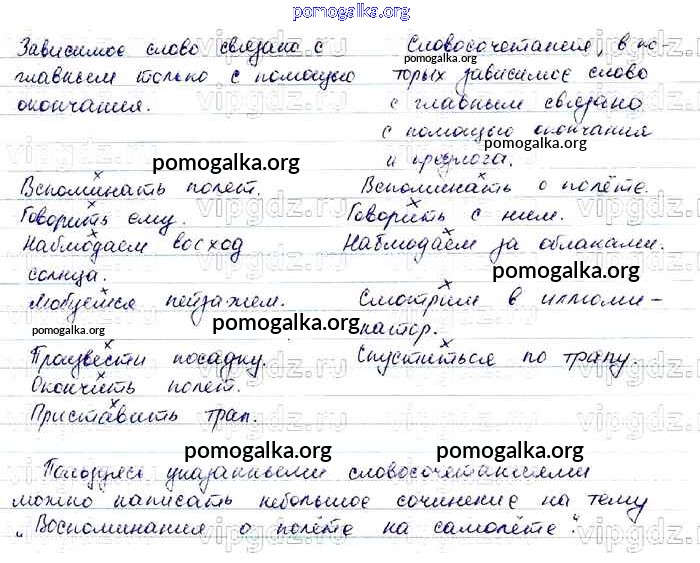 pomogalka.org
Зависимое слово связано с
главным только с помощью
окончания.
Словосочетания, в ко-
pomogalka.org
торых зависимое слово
с главным связано
с помощью окончания
и предлога.
pomogalka.org
pomogalka.org
Вспоминать полёт.
Вспоминать о полёте.
Говорить ему.
Говорить с ним.
Наблюдаем восход
солнца.
Наблюдаем за облаками.
pomogalka.org
Любуемся пейзажем.
Смотрим в иллюми-
натор.
pomogalka.org
pomogalka.org
pomogalka.org
Произвести посадку.
Спуститься по трапу.
Окончить полёт.
Приставить трап.
pomogalka.org
pomogalka.org
Пользуясь указанными словосочетаниями
можно написать небольшое сочинение на тему
„Воспоминания о полёте на самолёте".
pomogalka.org
vipgdz.ru